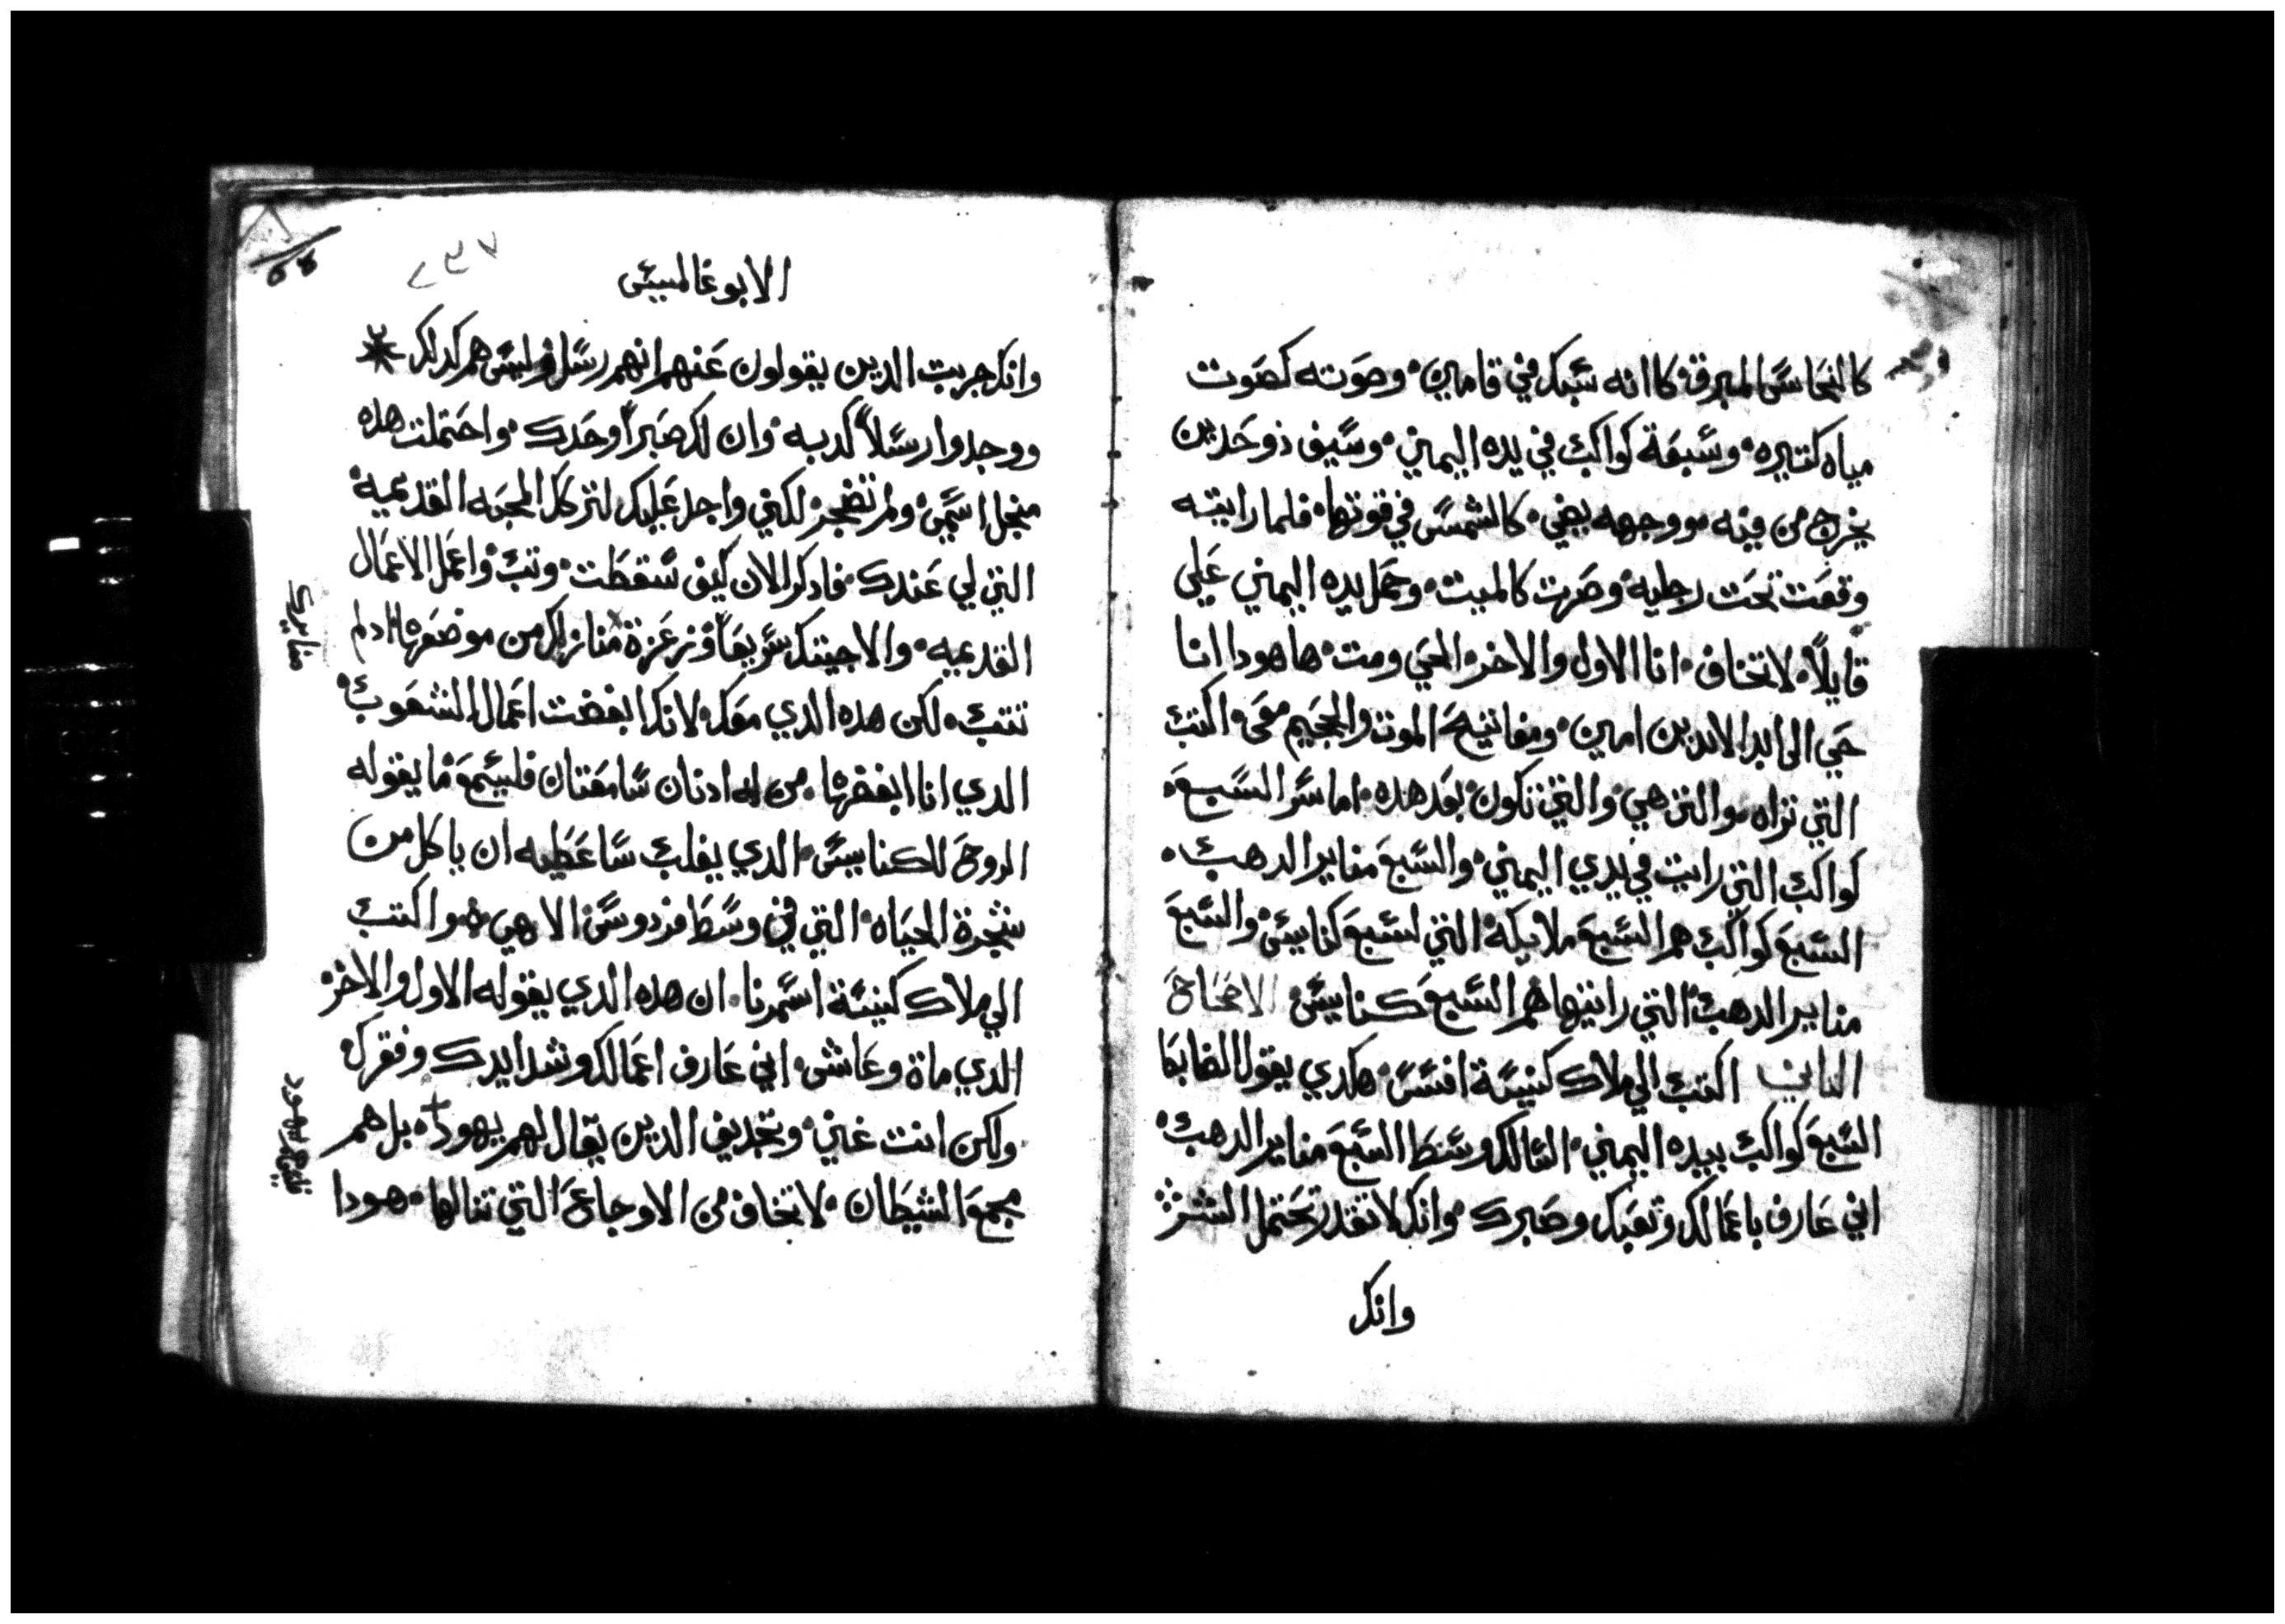 كالنحاس المبرق كاانه سبك في قامين وصوته كصوت
مياه كتيره وسبعة كواكب في يده اليمني وسيف ذو حدين
يخرج من فيه ووجهه يضي كالشمس في قوتها فلما رايته
وقعت تحت رجليه وصرت كالميت وجعل يده اليمني علي
قايلاً لا تخاف انا الاول والاخر الحي ومت ها هودا انا
حي الى ابد الابدين امين ومفاتيح الموت والجحيم معى اكتب
التي تراه والتي هي والتي تكون بعد هده اما سر السبع
كواكب التي رايت في يدي اليمني والسبع مناير الدهب
السبع كواكب هم السبع ملايكة التي لسبع كنايس والسبع
مناير الدهب التي رايتها هم السبع كنايس الاصحاح
التاني اكتب الي ملاك كنيسة افسس هكدي يقول الضابط
السبع كواكب بيده اليمني السالك وسط السبع مناير الدهب
اني عارف باعمالك وتعبك وصبرك وانك لا تقدر تحتمل الشر
وانك
الابوغالمسيس
٢٣٧
وانك جربت الدين يقولون عنهم انهم رسل وليس هم كدلك
ووجدوا رسلاً كدبه وان لك صبراً وحدك واحتملت هده
منجل اسمي ولم تضجر لكني واجد عليك لتركك المحبه القديمية
التي لي عندك فادكر الان كيف سقطت وتب واعمل الاعمال
القديميه والا جيتك سريعاً وزعزة منازلك من موضعها اد لم
تتب لكن هده الدي معك لانك ابغضت اعمال الشعوب
الدي انا ابغضها من له ادنان سامعتان فليسمع ما يقوله
الروح للكنايس الدي يغلب ساعطيه ان ياكل من
شجرة الحياه التي في وسط فردوس الاهي واكتب
الي ملاك كنيسة اسمرنا ان هده الدي يقوله الاول والاخر
الدي ماة وعاش اني عارف اعمالك وشدايدك وفقرك
ولكن انت غني وتجديف الدين يقال لهم يهود بل هم
مجمع الشيطان لا تخاف من الاوجاع التي تنالها هودا
منايرك